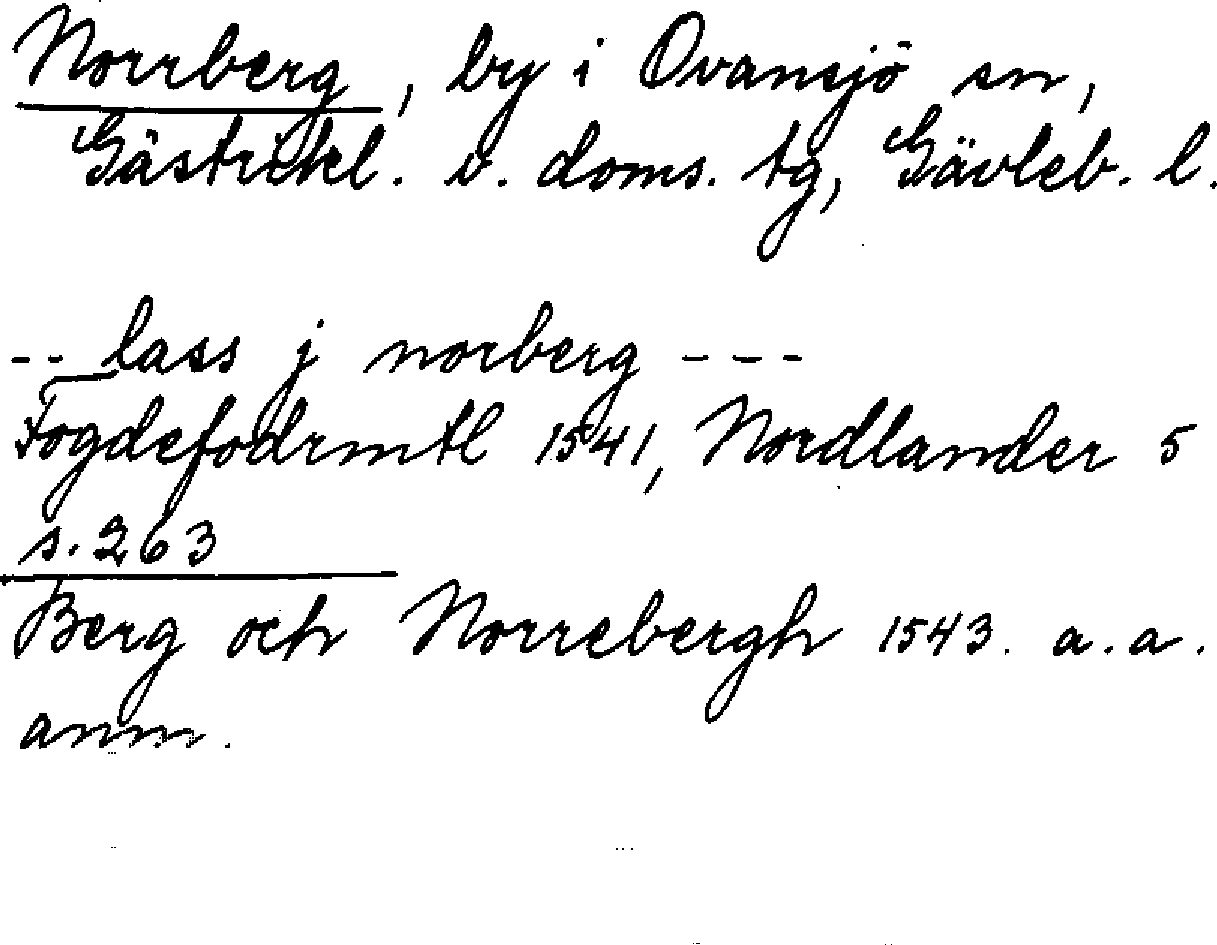 Norrberg, by i Ovansjö sn,
Gästrikl. v. doms. tg, Gävleb. l.
-- lass j norberg ---
Fogdefodrmtl 1541, Nordlander 5
s. 263
Berg och Norrebergh 1543. a.a.
anm.